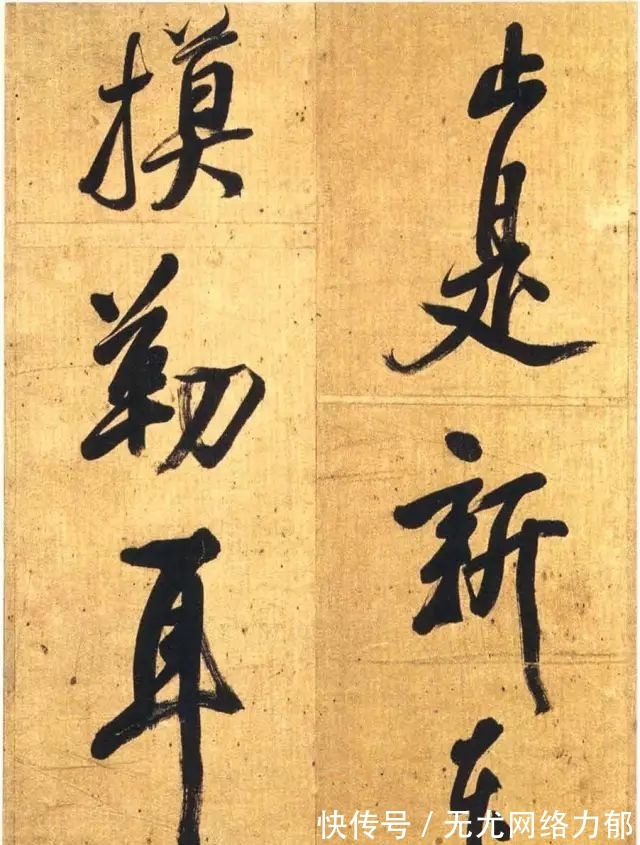 止是新
摸勒耳
快传号 / 无尤网络力郁